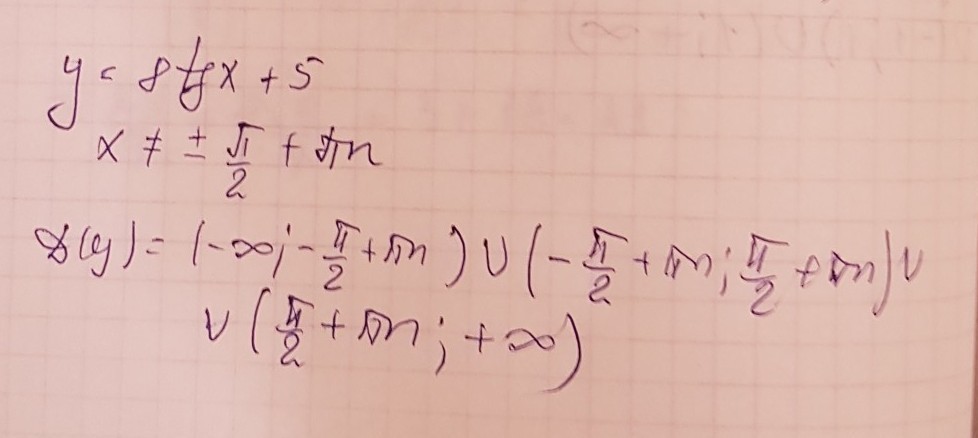 y = 8 tg x + 5
x ≠ ± π/2 + πn
D(y) = (-∞; -π/2 + πn) ∪ (-π/2 + πn; π/2 + πn) ∪
∪ (π/2 + πn; +∞)